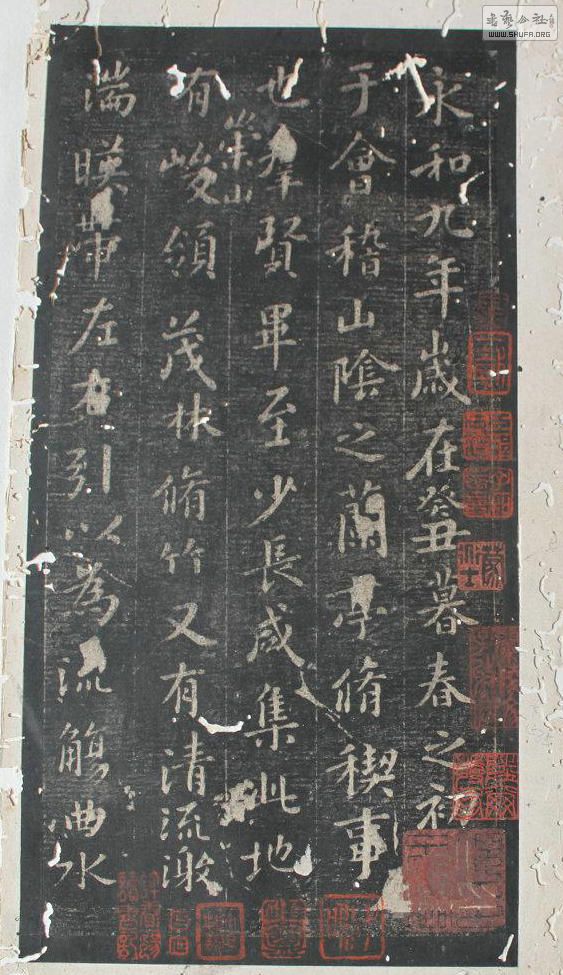 永和九年歲在癸丑暮春之初
于會稽山陰之蘭亭脩稧事
也羣賢畢至少長咸集此地
崇山
有峻領茂林脩竹又有清流激
湍暎帶左右引以為流觴曲水
WWW.SHUFA.ORG